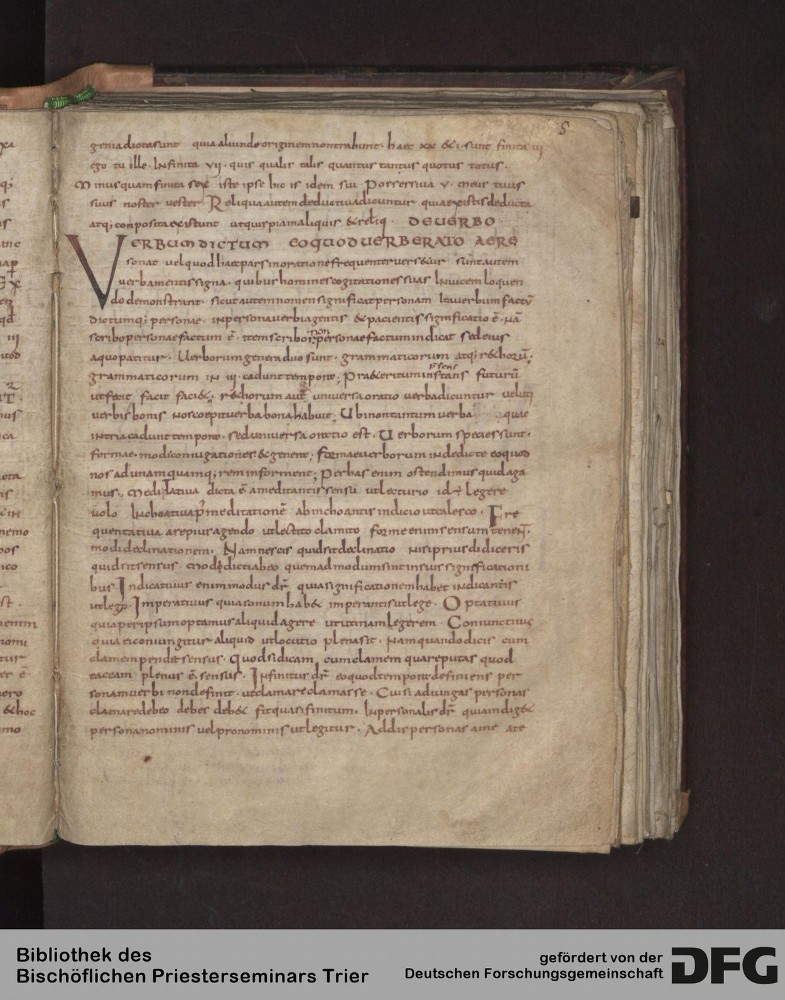 5
genia dicta sunt quia aliunde originem non trahunt. haec xx &i. sunt finita iii
ego tu ille. Infinita vii. quis qualis talis quantus tantus quotus totus.
Minus quam finita sex iste ipse hic is idem sui Possessiua v. meus tuus
suus noster uester Reliqua autem deductiua dicuntur quia ex istis deducta
atq; composita existunt ut quispiam aliquis & reliq. DE UERBO.
VERBUM DICTUM EO QUOD UERBERATO AERE
sonat uel quod haec pars in oratione frequenter uersetur sunt autem
uerba mentis signa. quibus homines cogitationes suas inuicem loquen
do demonstrant. sicut autem nomen significat personam ita uerbum factū
dictumq; personae. in persona uerbi agentis & pacientis significatio ē. Nā
scribo personae factum ē. item scribor non personae factum indicat sed eius
a quo patitur. Uerborum genera duo sunt. grammaticorum atq; rethorū.
grammaticorum in iii. cadunt tempora; Praeteritum instans futurū
psens
ut fecit facit faciet; rethorum aut uniuersa oratio uerba dicuntur uelut
uerbis bonis nos coepit uerba bona habuit. Ubi non tantum uerba quae
in tria cadunt tempora. sed uniuersa oratio est. Uerborum species sunt.
formae. modi coniugationes & genera; formae uerborum inde dicte eo quod
nos ad unam quamq; rem informent; Per has enim ostendimus quid aga
mus. Meditatiua dicta ē a meditantis sensu ut lecturio id ē legere
uolo Inchoatiua p̄ meditationē ab inchoantis indicio ut calesco. Fre
quentatiua a sepius agendo ut lectito clamito forme enim sensum tenent.
modi declinationem. Nam nescis quid sit declinatio nisi prius didiceris
quid sit sensus. modi dicti ab eo quem ad modum sint in suis significationi
bus. Indicatiuus enim modus dr̄ quia significationem habet indicantis
ut lego. Imperatiuus quia sonum habet imperantis ut lege. Optatiuus
quia per ipsum optamus aliquid agere ut utinam legerem. Coniunctiuus
quia ei coniungitur aliquid ut locutio plena sit. Nam quando dicis cum
clamem pendet sensus. Quod si dicam cum clamem quare putas quod
taceam plenus ē sensus. Infinitus dr̄ eo quod tempora definiens per
sonam uerbi non definit. ut clamare clamasse. Cui si adiungas personas
clamare debeo debes debet fit quasi finitum. Inpersonalis dr̄ quia indiget
persona nominis uel pronominis ut legitur. Addis personas a me a te
Bibliothek des
Bischöflichen Priesterseminars Trier
gefördert von der
Deutschen Forschungsgemeinschaft
DFG